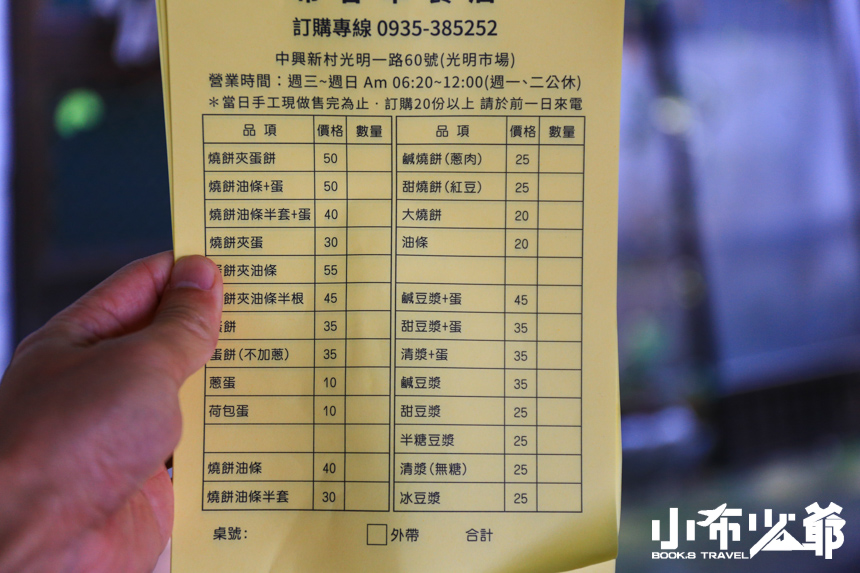 訂購專線 0935-385252
中興新村光明一路60號(光明市場)
營業時間：週三~週日 Am 06:20~12:00(週一、二公休)
＊當日手工現做售完為止．訂購20份以上 請於前一日來電
品 項 價格 數量 品 項 價格 數量
燒餅夾蛋餅 50 鹹燒餅(蔥肉) 25
燒餅油條+蛋 50 甜燒餅(紅豆) 25
燒餅油條半套+蛋 40 大燒餅 20
燒餅夾蛋 30 油條 20
餅夾油條 55
餅夾油條半根 45 鹹豆漿+蛋 45
餅 35 甜豆漿+蛋 35
蛋餅(不加蔥) 35 清漿+蛋 35
蔥蛋 10 鹹豆漿 35
荷包蛋 10 甜豆漿 25
半糖豆漿 25
燒餅油條 40 清漿(無糖) 25
燒餅油條半套 30 冰豆漿 25
桌號: 外帶 合計
小布少爺
BOOK.B TRAVEL